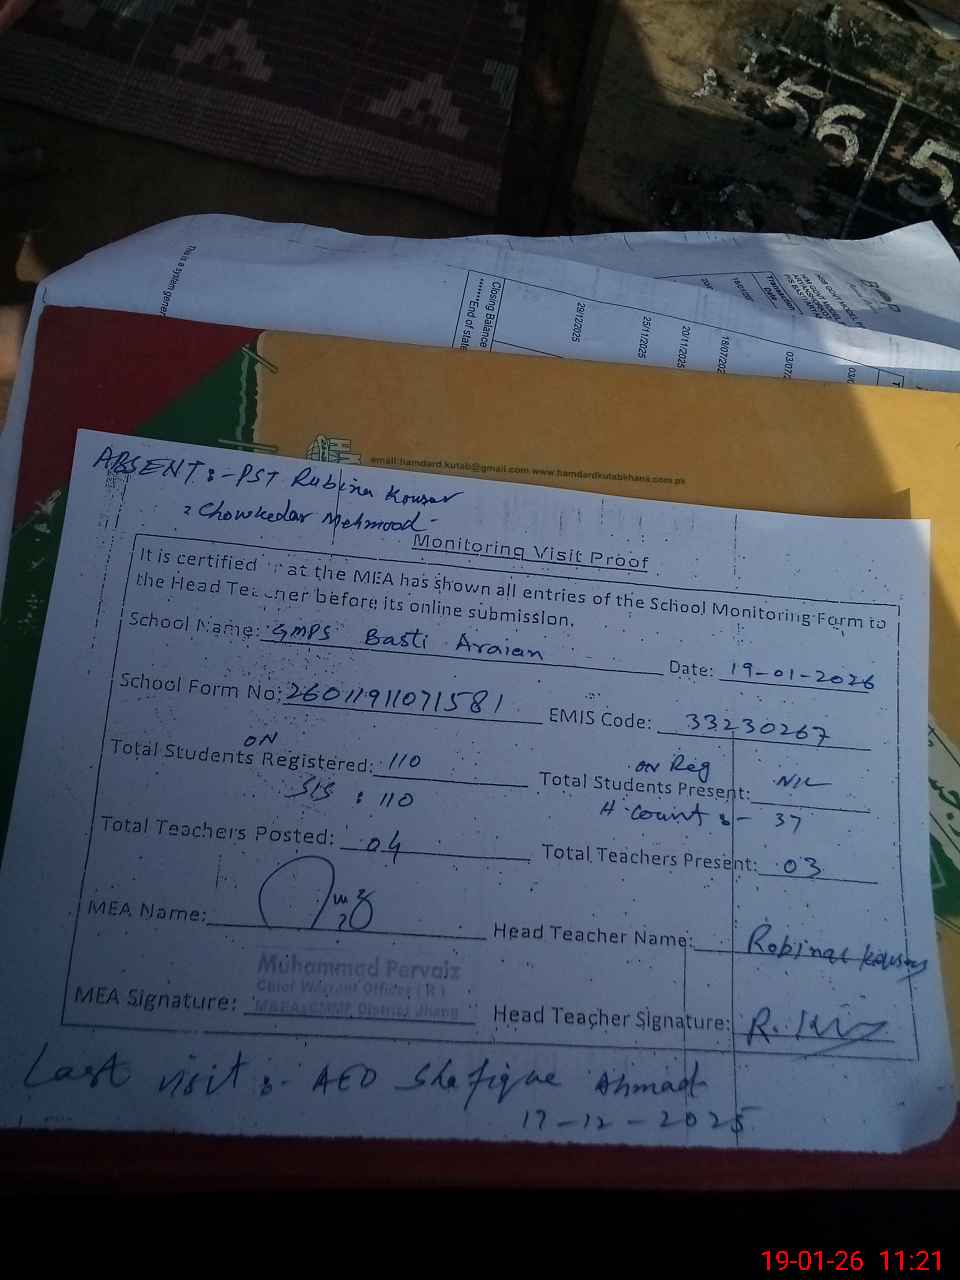 56 5
This is a system gener
Closing Balance
******End of state
29/12/2025
25/11/2025
20/11/2025
18/07/202
03/07/
03/0
Transaction
Date
email:hamdard.kutab@gmail.com www.hamdardkutabkhana.com.pk
ABSENT:- PST Rubina Kousar
2 Chowkedar Mehmood -
Monitoring Visit Proof
It is certified that the MEA has shown all entries of the School Monitoring Form to
the Head Teacher before its online submission.
School Name: GMPS Basti Araian Date: 19-01-2026
School Form No: 26011911071581 EMIS Code: 33230267
ON
Total Students Registered: 110
SIS : 110
on Reg
Total Students Present: NIL
H-Count :- 37
Total Teachers Posted: 04 Total Teachers Present: 03
MEA Name: Head Teacher Name: Robina Kousar
Muhammad Pervaiz
Chief Warrant Officer (R)
MEA Signature: District Jhang Head Teacher Signature: R.
Last visit :- AEO Shafique Ahmad
17-12-2025
19-01-26 11:21